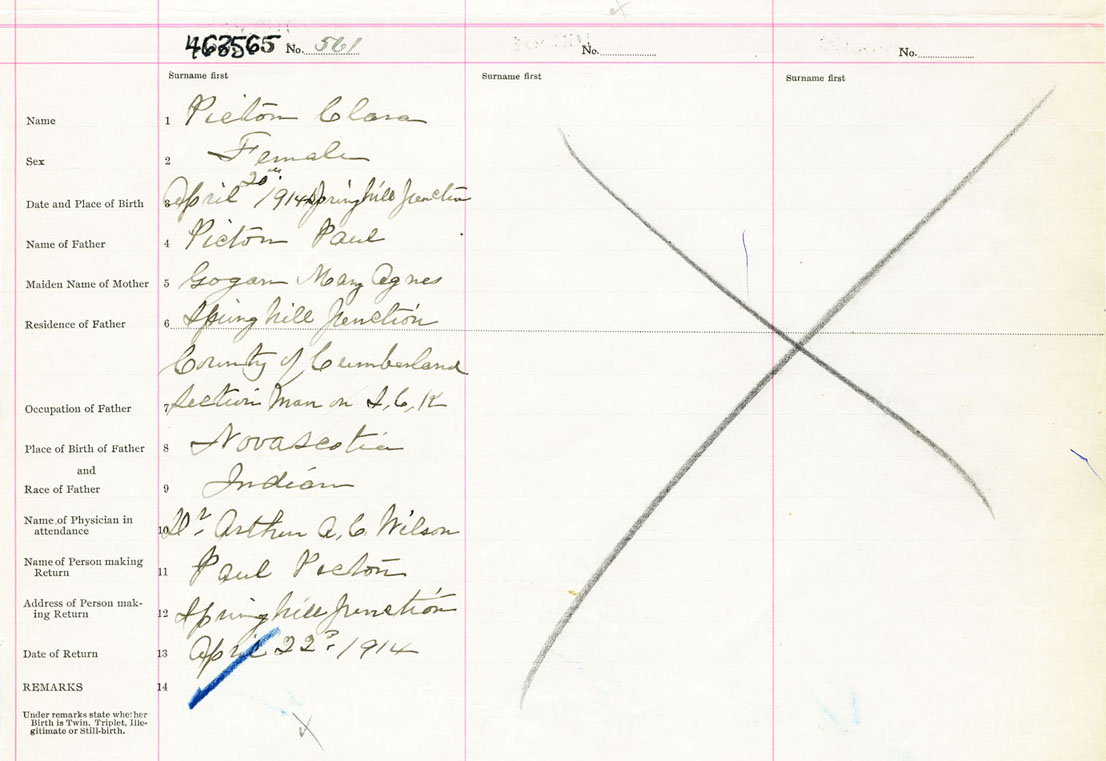 463565 No. 561 No. No.
Surname first Surname first Surname first
Name 1 Picton Clara
Sex 2 Female
Date and Place of Birth 3 April 20th 1914 Springhill Junction
Name of Father 4 Picton Paul
Maiden Name of Mother 5 Gogan Mary Agnes
Residence of Father 6 Springhill Junction
County of Cumberland
Occupation of Father 7 Section Man on I, C, R
Place of Birth of Father 8 Novascotia
and
Race of Father 9 Indian
Name of Physician in
attendance 10 Dr. Arthur A, C, Wilson
Name of Person making
Return 11 Paul Picton
Address of Person mak-
ing Return 12 Springhill Junction
Date of Return 13 April 22 1914
REMARKS 14
Under remarks state whether
Birth is Twin, Triplet, Ille-
gitimate or Still-birth.